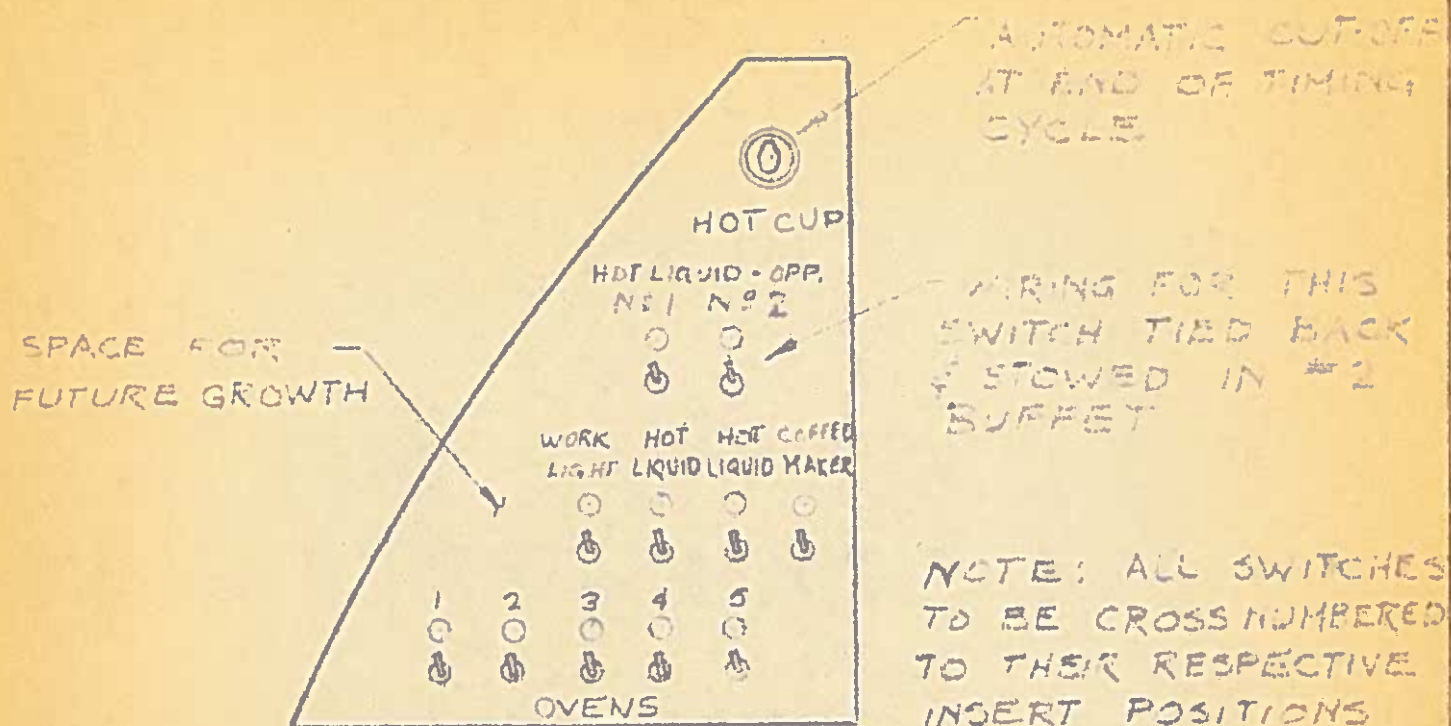 AUTOMATIC CUT-OFF
AT END OF TIMING
CYCLE
HOT CUP
HOT LIQUID - OPP.
Nº1 Nº2
WIRING FOR THIS
SWITCH TIED BACK
& STOWED IN #2
BUFFET
SPACE FOR
FUTURE GROWTH
WORK HOT HOT COFFEE
LIGHT LIQUID LIQUID MAKER
1 2 3 4 5
OVENS
NOTE: ALL SWITCHES
TO BE CROSS NUMBERED
TO THEIR RESPECTIVE
INSERT POSITIONS